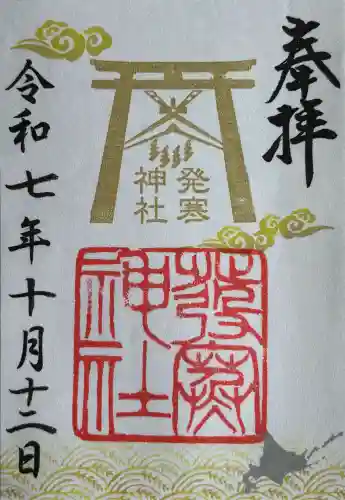 奉拝
発寒
神社
発寒
神社
令和七年十月十二日